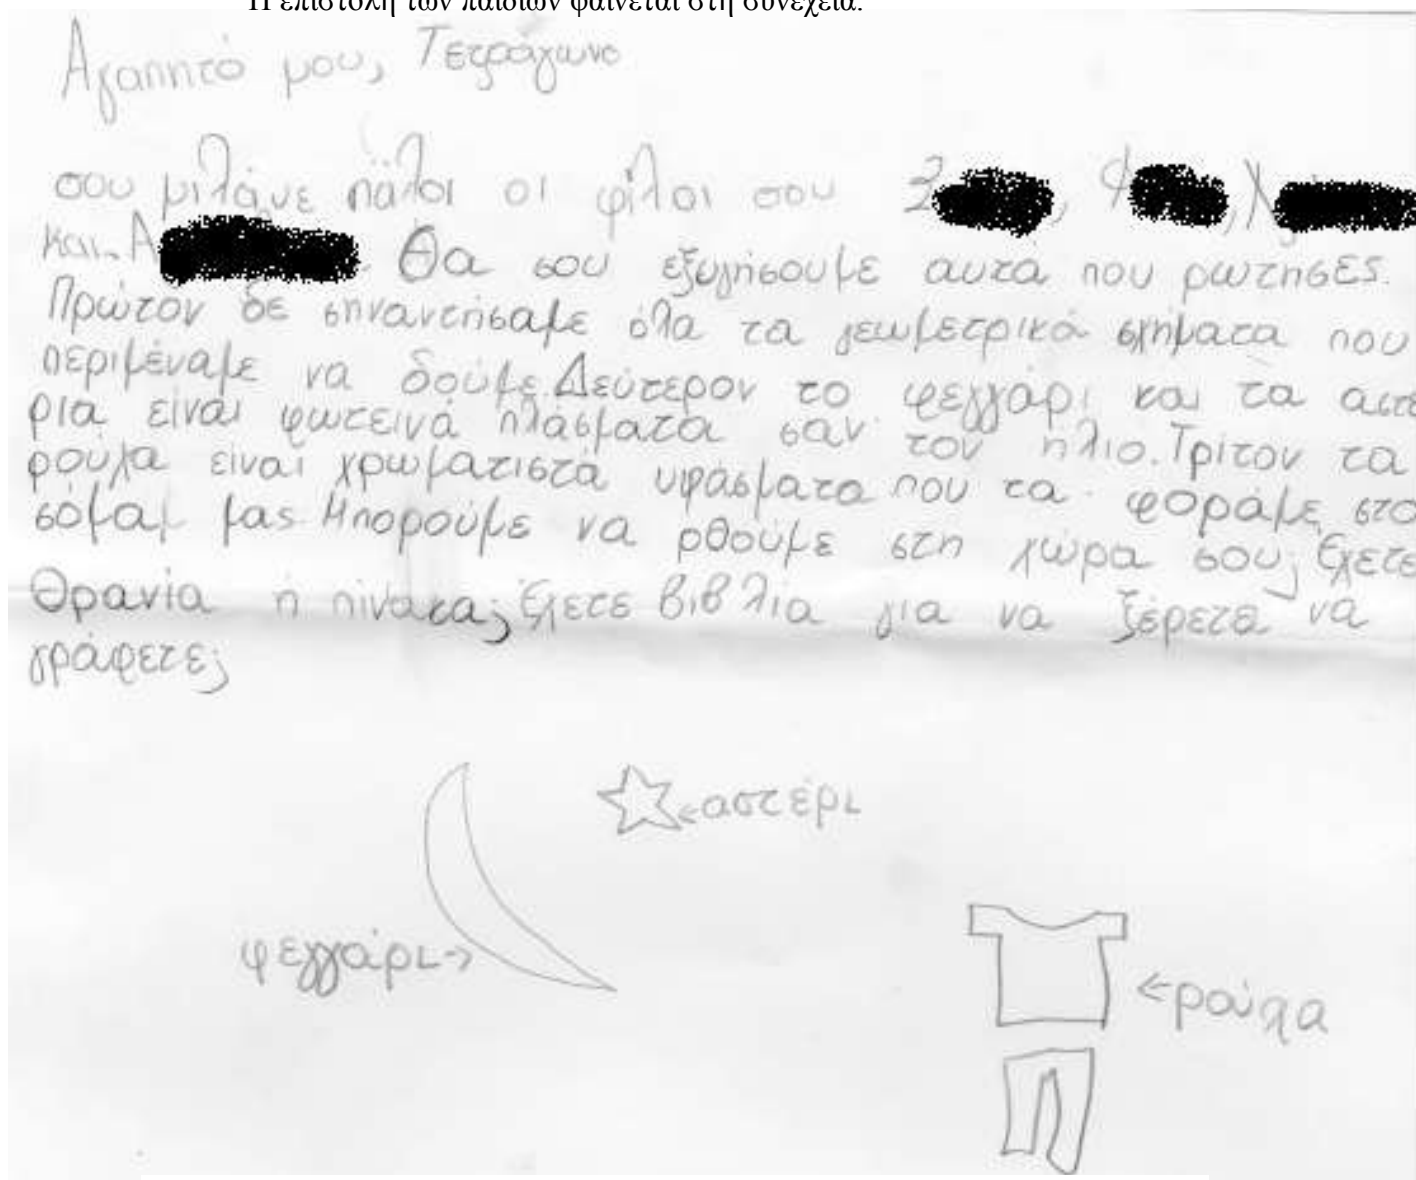 Η επιστολή των παιδιών φαίνεται στη συνέχεια:
Αγαπητό μου, Τετράγωνο
σου μιλάνε πάλοι οι φίλοι σου
και Α Θα σου εξυγήσουμε αυτα που ρωτησες.
Πρώτον δε σηναντήσαμε όλα τα γεωμετρικά σχήματα που
περιμέναμε να δούμε. Δεύτερον το φεγγάρι και τα αστέ
ρια είναι φωτεινά πλάσματα σαν τον ηλιο. Τρίτον τα
ρούχα είναι χρωματιστά υφάσματα που τα φοράμε στο
σόμα μας. Μπορούμε να ρθούμε στη χώρα σου; Έχετε
Θρανία η πίνακα; Έχετε βιβλία για να ξέρετε να
γράφετε;
αστέρι
φεγγάρι
ρούχα